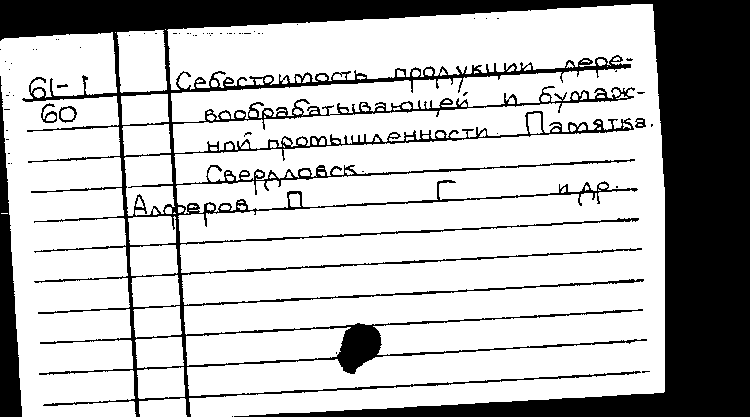 61-1 Себестоимость продукции дере-
60 вообрабатывающей и бумаж-
ной промышленности. Памятка.
Свердловск.
Алферов, П Г и др.